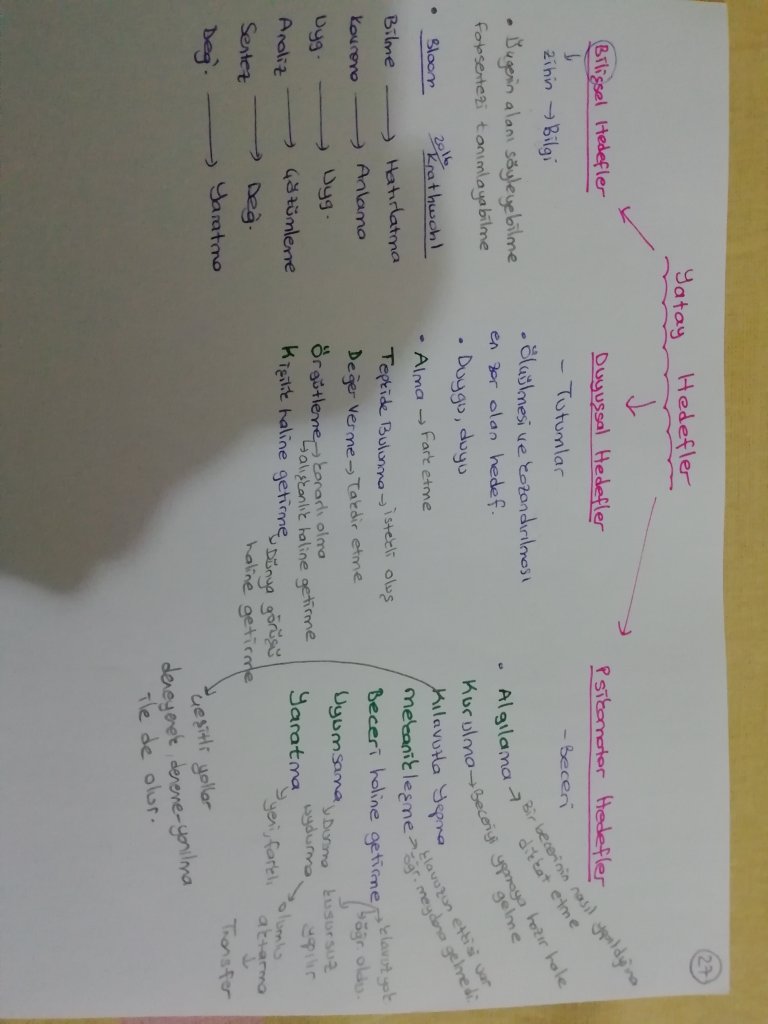 27
Yatay Hedefler
Bilişsel Hedefler
zihin → Bilgi
• Üçgenin alanı söyleyebilme
Fotosentezi tanımlayabilme
• Bloom 2016 Krathwohl
Bilme → Hatırlatma
Kavrama → Anlama
Uyg. → Uyg.
Analiz → Çözümleme
Sentez → Değ.
Değ. → Yaratma
Duyuşsal Hedefler
- Tutumlar
• Ölçülmesi ve kazandırılması
en zor olan hedef.
• Duygu, duyu
• Alma → Fark etme
Tepkide Bulunma → İstekli oluş
Değer Verme → Takdir etme
Örgütleme → kararlı olma
↳ alışkanlık haline getirme
Kişilik haline getirme
↳ Dünya görüşü
haline getirme
Psikomotor Hedefler
- Beceri
• Algılama → Bir becerinin nasıl yapıldığına
dikkat etme
Kurulma → Beceriyi yapmaya hazır hale
gelme
Kılavuzla yapma
kılavuzun etkisi var
Mekanikleşme → öğr. meydana gelmedi
Beceri haline getirme → kılavuz yok
↳ öğr. oldu.
Uyumsama ↳ Duruma kusursuz
uydurma yapılır
Yaratma
↳ yeni, farklı
olumlu
aktarma
↓
Transfer
Çeşitli yollar
deneyerek, deneme-yanılma
ile de olur.